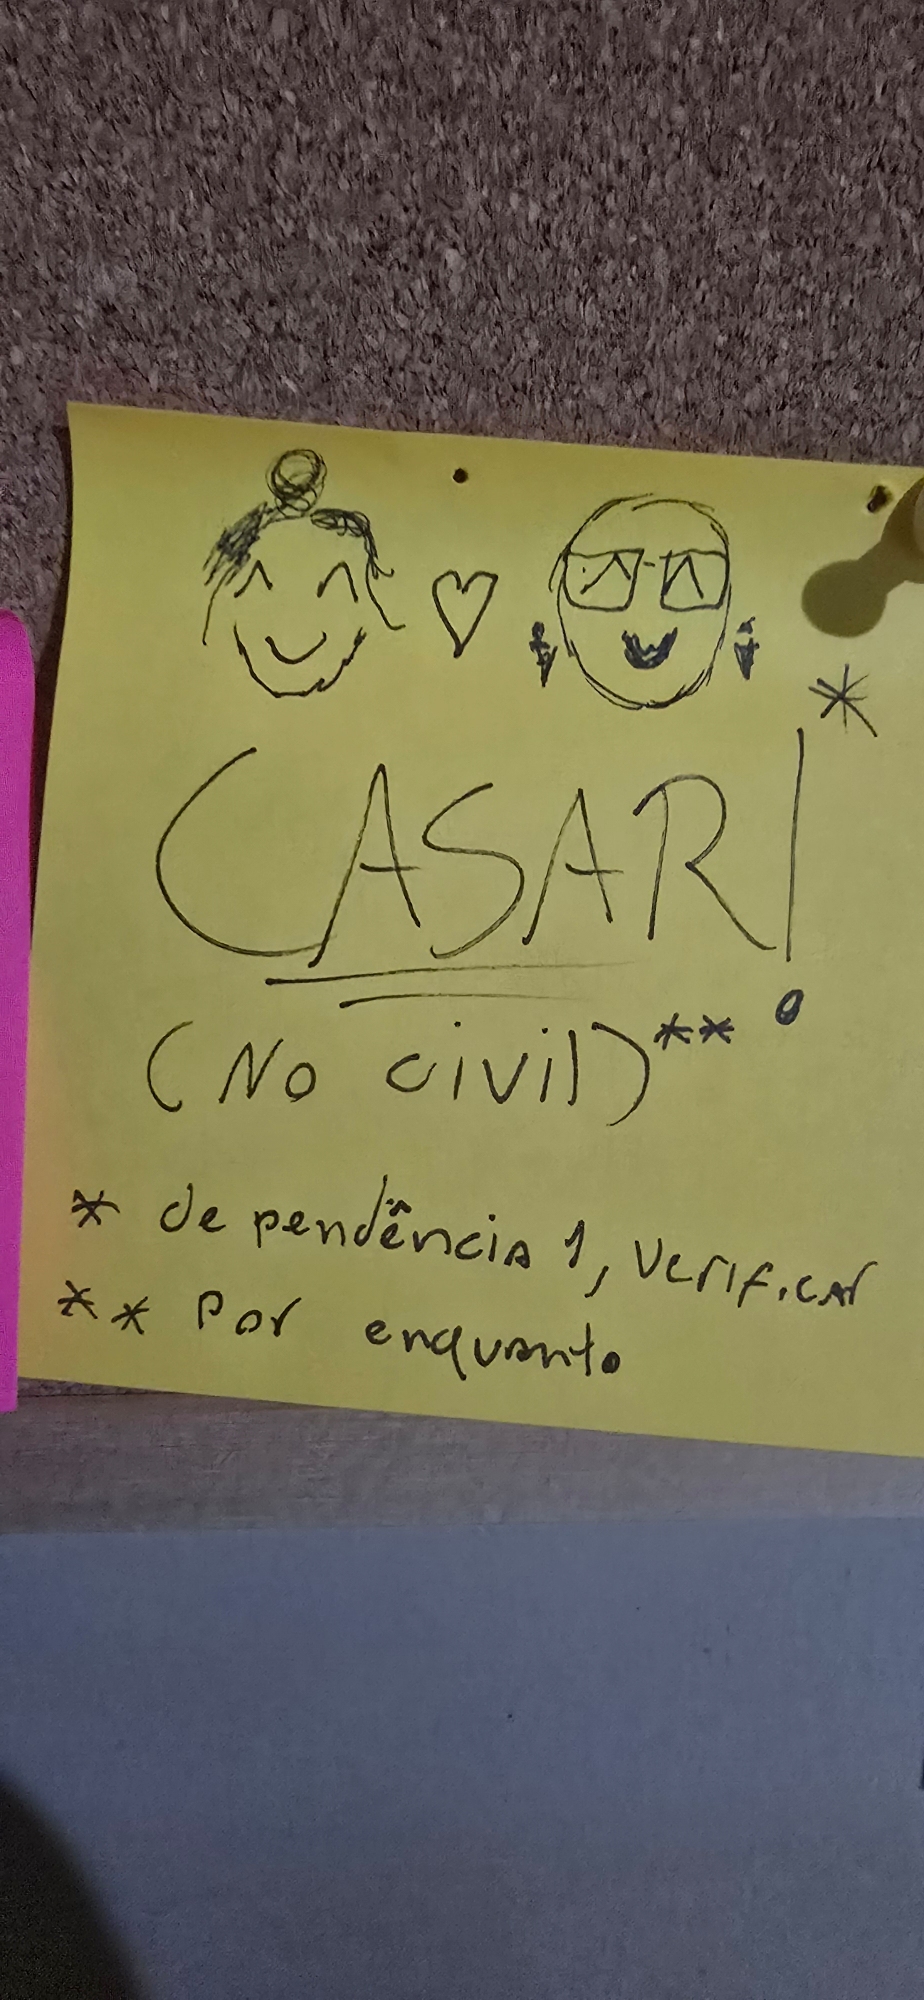 CASAR!*
(No civil)**
* dependência 1, verificar
** Por enquanto